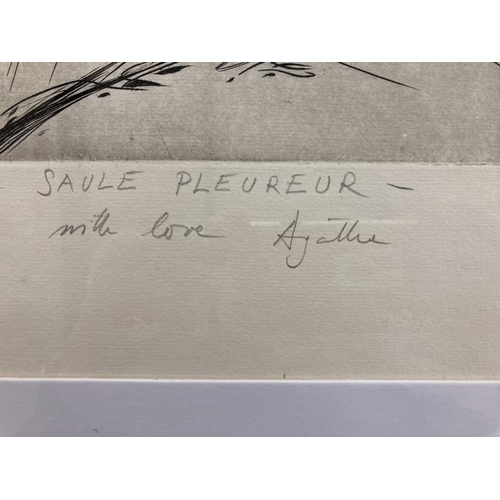 - SAULE PLEUREUR -
with love Agathe